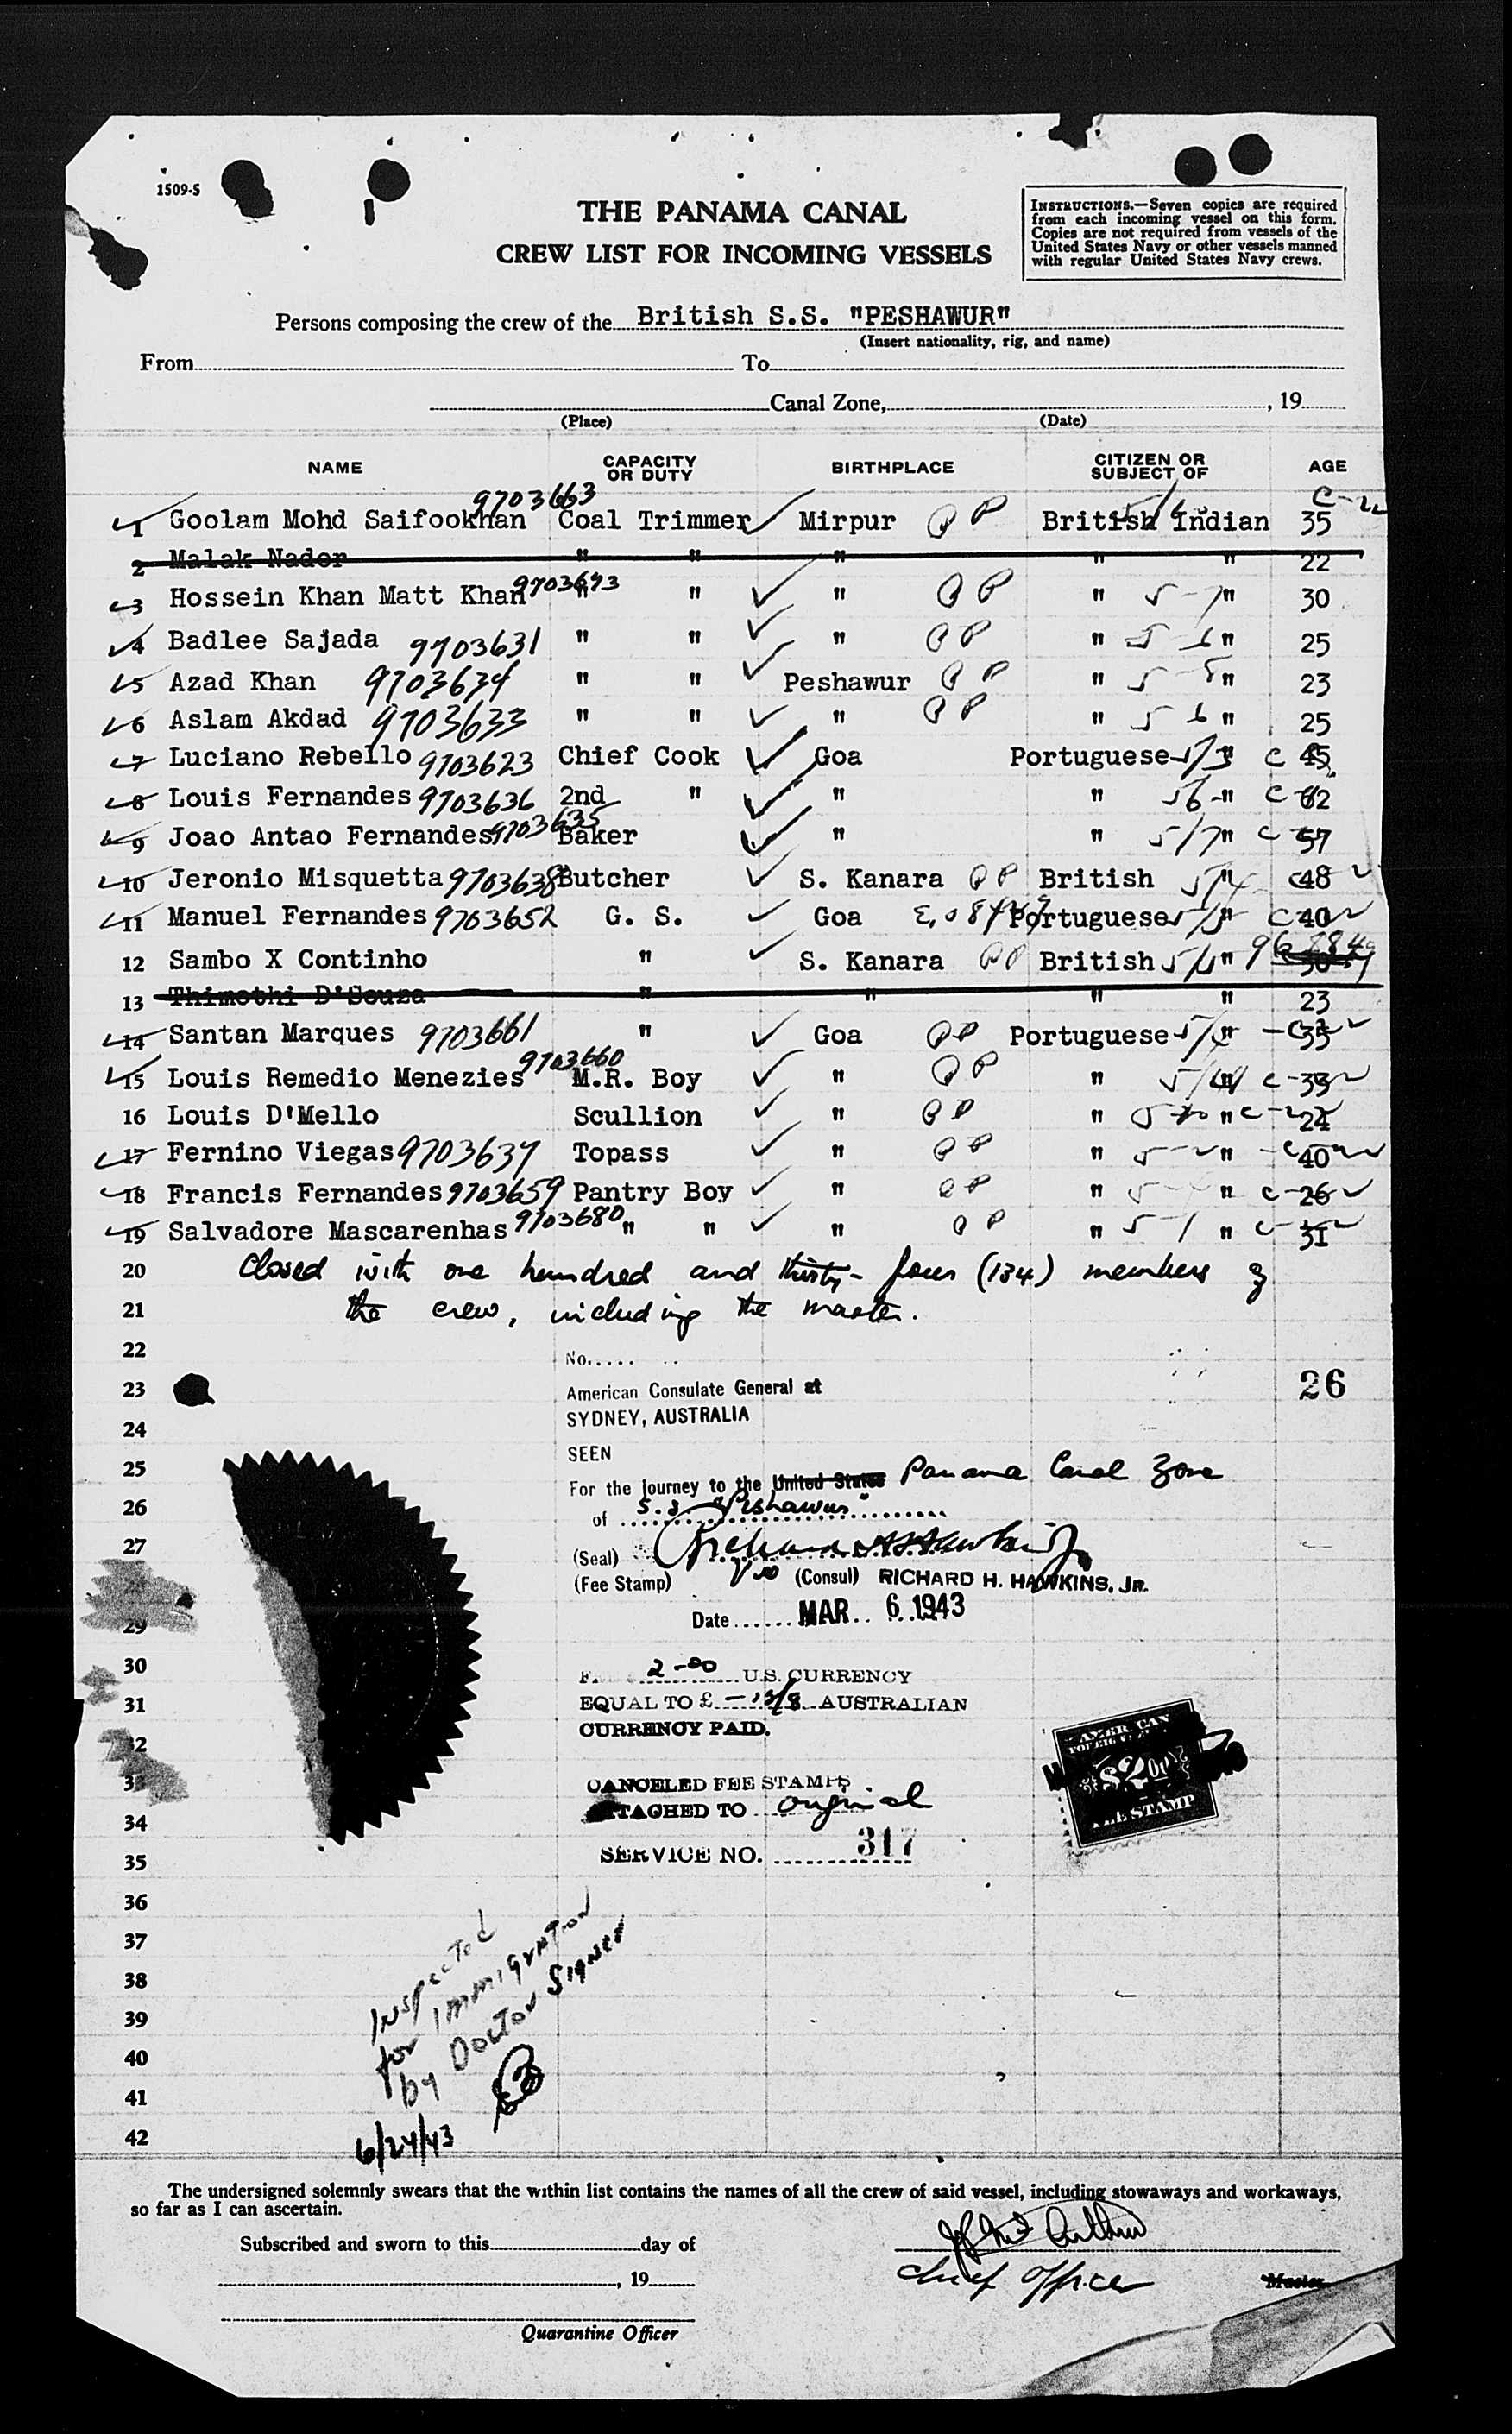 1509-S
THE PANAMA CANAL
CREW LIST FOR INCOMING VESSELS
INSTRUCTIONS.—Seven copies are required
from each incoming vessel on this form.
Copies are not required from vessels of the
United States Navy or other vessels manned
with regular United States Navy crews.
Persons composing the crew of the British S.S. "PESHAWUR"
(Insert nationality, rig, and name)
From To
Canal Zone, , 19
(Place) (Date)
NAME CAPACITY OR DUTY BIRTHPLACE CITIZEN OR SUBJECT OF AGE
1 Goolam Mohd Saifookhan 9703663 Coal Trimmer Mirpur British Indian 35
2 Malak Nador " " " " " 22
3 Hossein Khan Matt Khan 9703693 " " " " " 30
4 Badlee Sajada 9703631 " " " " " 25
5 Azad Khan 9703634 " " Peshawur " " 23
6 Aslam Akdad 9703633 " " " " " 25
7 Luciano Rebello 9703623 Chief Cook Goa Portuguese 45
8 Louis Fernandes 9703636 2nd " " " " 62
9 Joao Antao Fernandes 9703635 Baker " " " 57
10 Jeronio Misquetta 9703638 Butcher S. Kanara British 48
11 Manuel Fernandes 9703652 G. S. Goa Portuguese " 40
12 Sambo X Continho " S. Kanara British " 30
13 Thimothi D'Souza " " " " 23
14 Santan Marques 9703661 " Goa Portuguese " 35
15 Louis Remedio Menezies 9703660 M.R. Boy " " " 33
16 Louis D'Mello Scullion " " " 24
17 Fernino Viegas 9703637 Topass " " " 40
18 Francis Fernandes 9703659 Pantry Boy " " " 26
19 Salvadore Mascarenhas 9703680 " " " " " 31
20 Closed with one hundred and thirty-four (134) members of
21 the crew, including the master.
22
No.....
23
American Consulate General at
26
SYDNEY, AUSTRALIA
24
SEEN
25
For the journey to the United States Panama Canal Zone
26
of S.S. "Peshawur"
27
(Seal) Richard H. Hawkins Jr
(Fee Stamp) (Consul) RICHARD H. HAWKINS, JR.
29
Date MAR. 6 1943
30
2-00 U.S. CURRENCY
31
EQUAL TO £ AUSTRALIAN
CURRENCY PAID.
32
AMERICAN
FOREIGN
$2.00
FEE STAMP
33
CANCELED FEE STAMPS
ATTACHED TO original
34
SERVICE NO. 317
35
36
37
38
39
40
41
42
Inspected
for immigration
by Doctor Signed
6/24/43
The undersigned solemnly swears that the within list contains the names of all the crew of said vessel, including stowaways and workaways,
so far as I can ascertain.
Subscribed and sworn to this day of
Chief Officer Master
, 19
Quarantine Officer